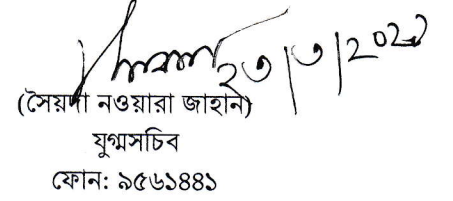 ২৩/৩/২০২১
(সৈয়দা নওয়ারা জাহান)
যুগ্মসচিব
ফোন: ৯৫৬১৪৪১